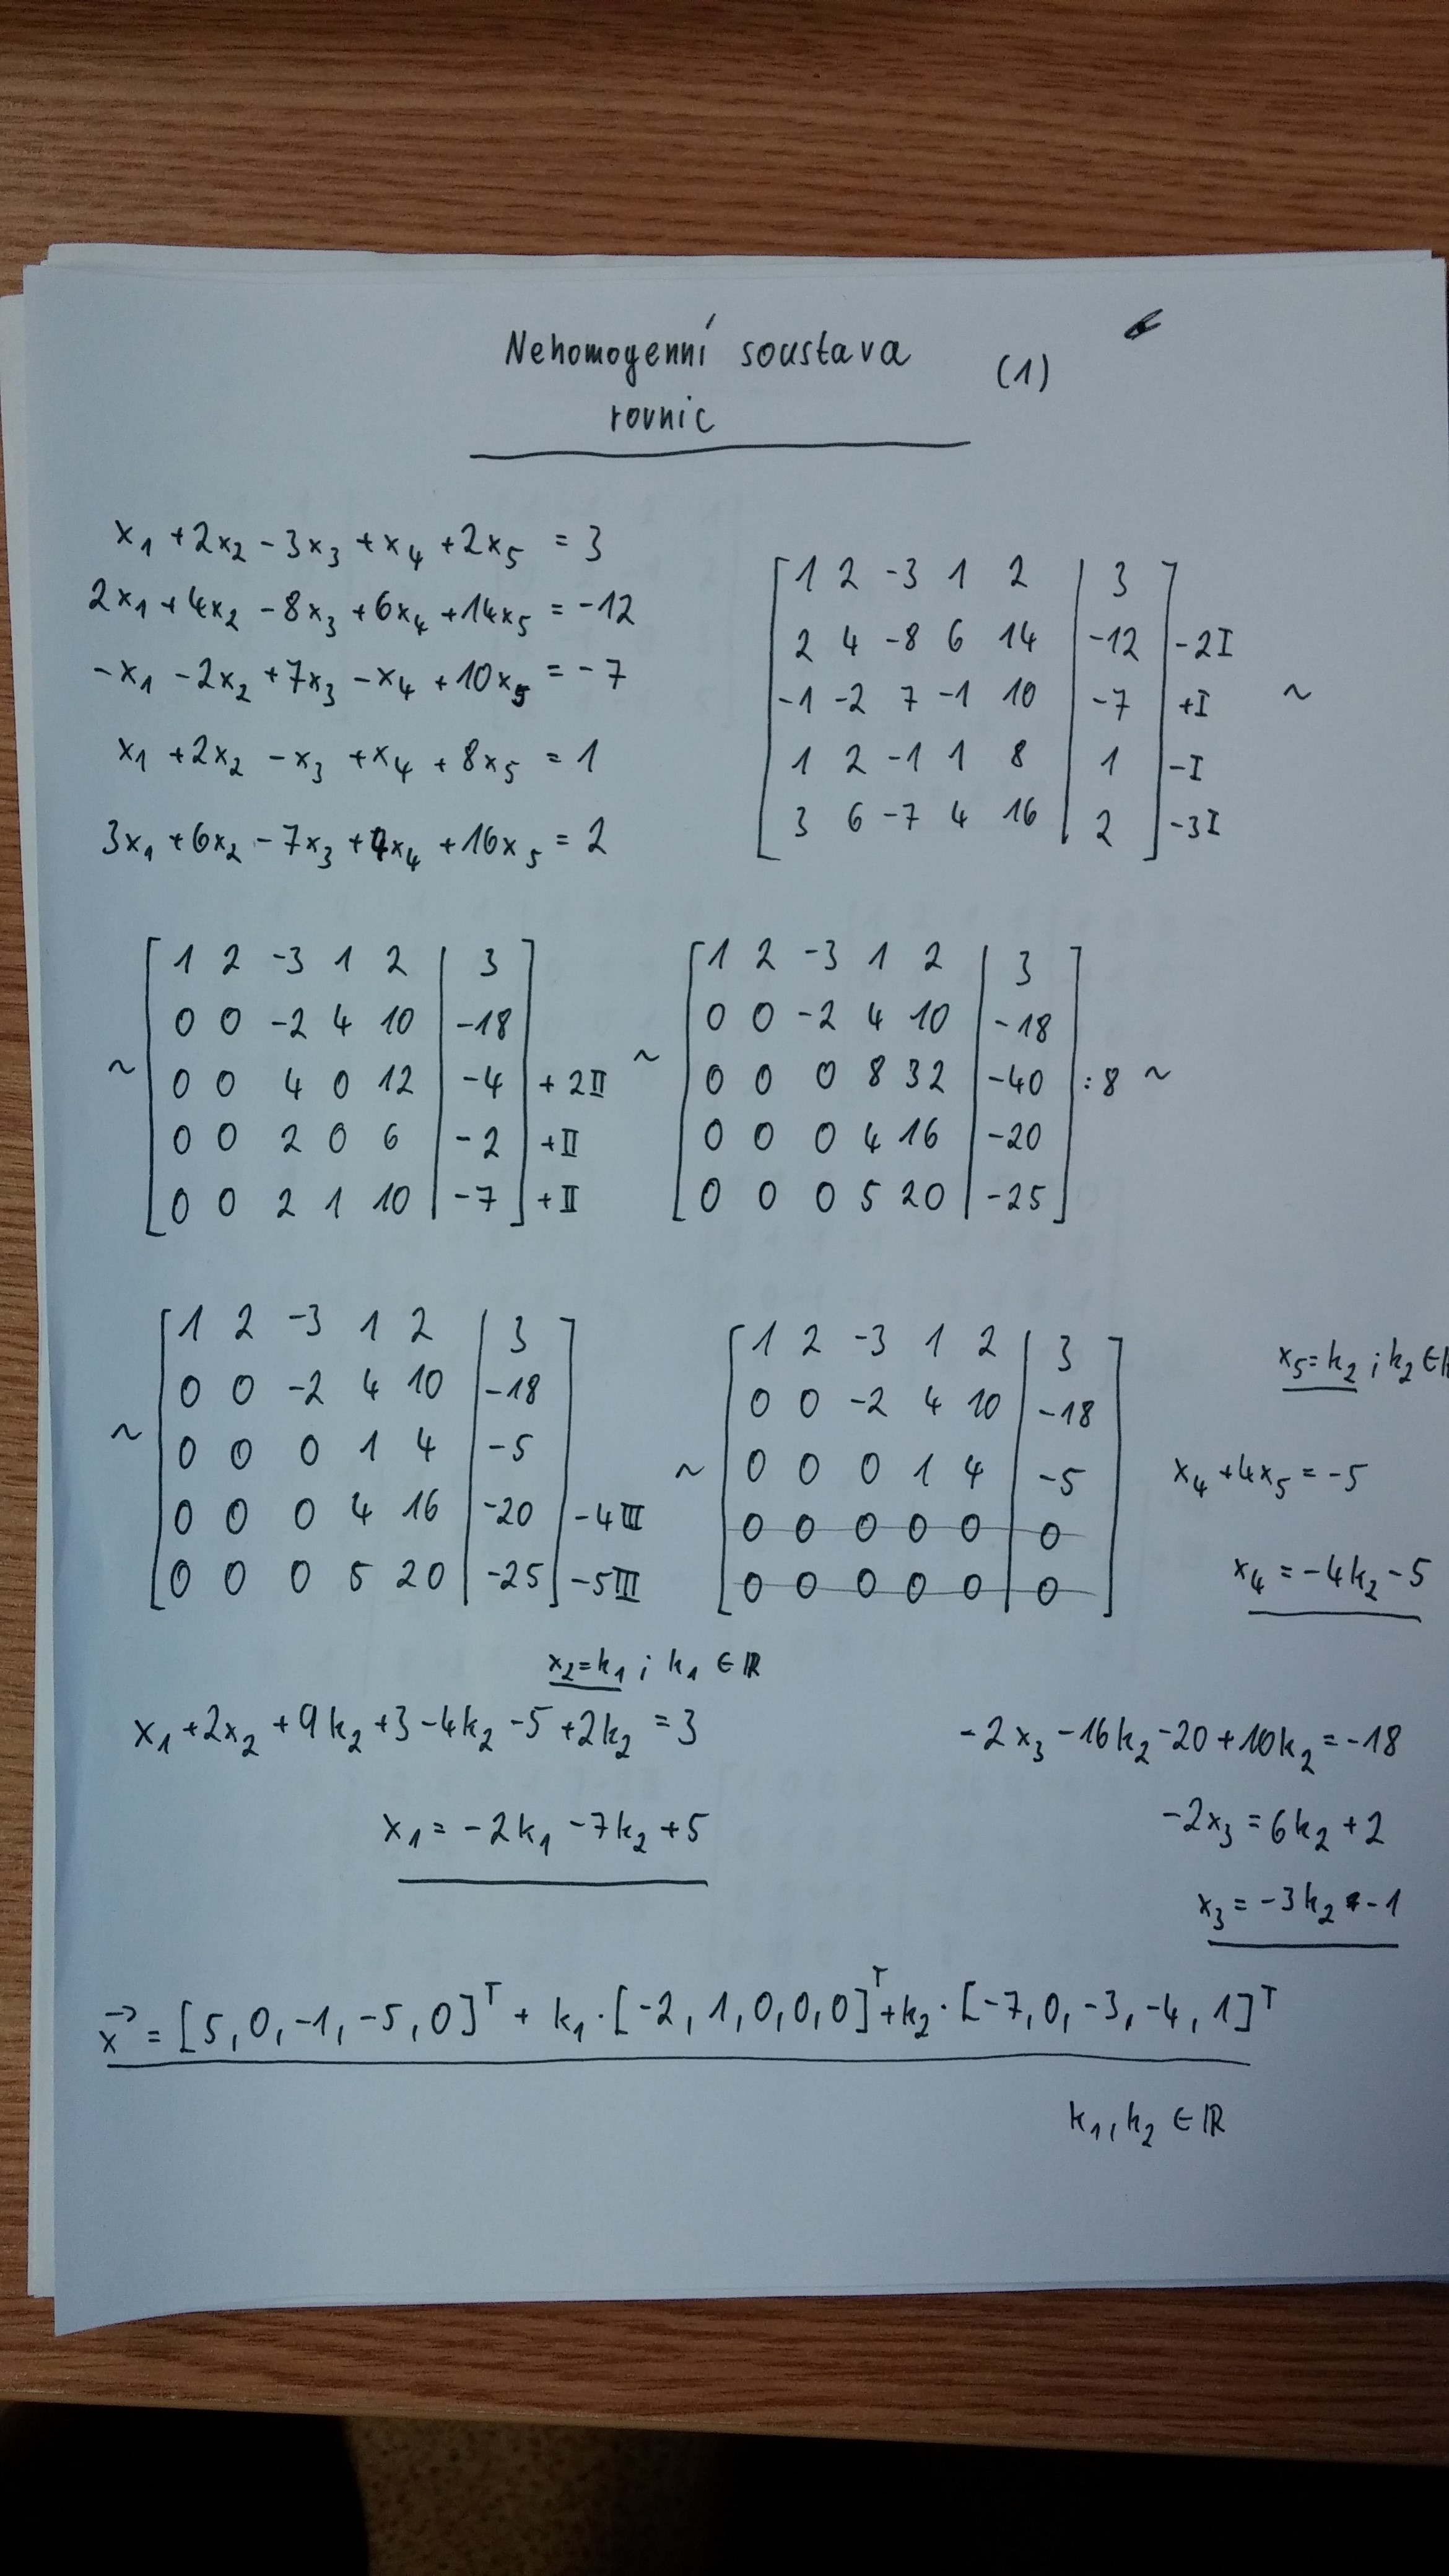 Nehomogenní soustava (1)
rovnic
x₁ + 2x₂ - 3x₃ + x₄ + 2x₅ = 3
2x₁ + 4x₂ - 8x₃ + 6x₄ + 14x₅ = -12
-x₁ - 2x₂ + 7x₃ - x₄ + 10x₅ = -7
x₁ + 2x₂ - x₃ + x₄ + 8x₅ = 1
3x₁ + 6x₂ - 7x₃ + 4x₄ + 16x₅ = 2
[1 2 -3 1 2 | 3]
2 4 -8 6 14 | -12 -2I
-1 -2 7 -1 10 | -7 +I ~
1 2 -1 1 8 | 1 -I
3 6 -7 4 16 | 2 -3I
[1 2 -3 1 2 | 3]
0 0 -2 4 10 | -18
~ 0 0 4 0 12 | -4 +2II
0 0 2 0 6 | -2 +II
0 0 2 1 10 | -7 +II
[1 2 -3 1 2 | 3]
~ 0 0 -2 4 10 | -18
0 0 0 8 32 | -40 :8 ~
0 0 0 4 16 | -20
0 0 0 5 20 | -25
[1 2 -3 1 2 | 3]
0 0 -2 4 10 | -18
~ 0 0 0 1 4 | -5
0 0 0 4 16 | -20 -4III
0 0 0 5 20 | -25 -5III
[1 2 -3 1 2 | 3]
0 0 -2 4 10 | -18
~ 0 0 0 1 4 | -5
0 0 0 0 0 | 0
0 0 0 0 0 | 0
x₅ = k₂ ; k₂ ∈
x₄ + 4x₅ = -5
x₄ = -4k₂ - 5
-2x₃ - 16k₂ - 20 + 10k₂ = -18
-2x₃ = 6k₂ + 2
x₃ = -3k₂ - 1
x₂ = k₁ ; k₁ ∈ ℝ
x₁ + 2x₂ + 9k₂ + 3 - 4k₂ - 5 + 2k₂ = 3
x₁ = -2k₁ - 7k₂ + 5
x⃗ = [5, 0, -1, -5, 0]ᵀ + k₁·[-2, 1, 0, 0, 0]ᵀ + k₂·[-7, 0, -3, -4, 1]ᵀ
k₁, k₂ ∈ ℝ